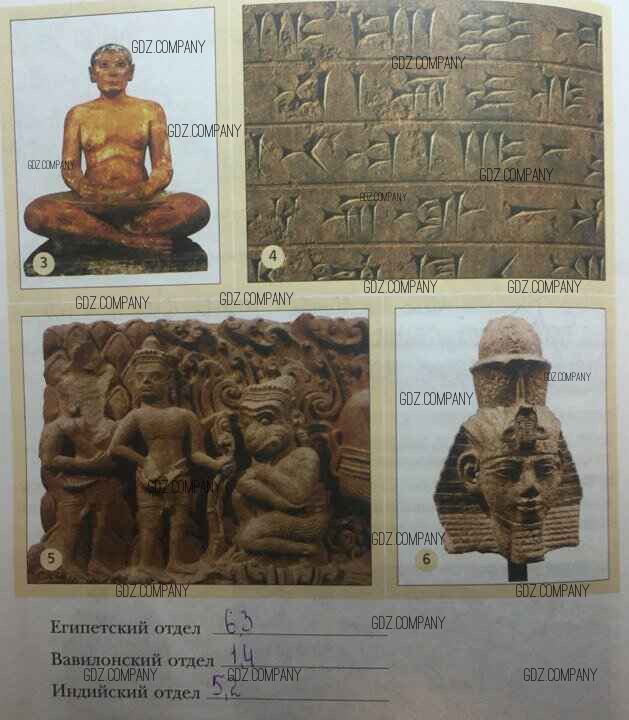 GDZ.COMPANY
GDZ.COMPANY
GDZ.COMPANY
GDZ.COMPANY
GDZ.COMPANY
GDZ.COMPANY
3
4
GDZ.COMPANY
GDZ.COMPANY
GDZ.COMPANY
GDZ.COMPANY
GDZ.COMPANY
GDZ.COMPANY
GDZ.COMPANY
GDZ.COMPANY
5
6
GDZ.COMPANY
GDZ.COMPANY
Египетский отдел 6,3
GDZ.COMPANY
Вавилонский отдел 1,4
GDZ.COMPANY
GDZ.COMPANY
GDZ.COMPANY
Индийский отдел 5,2